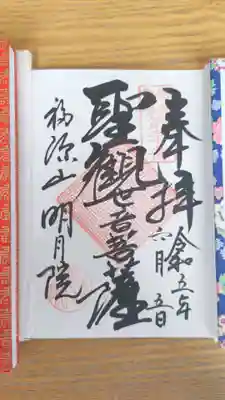 奉拝
令和五年
六月五日
聖觀世音菩薩
福源山明月院